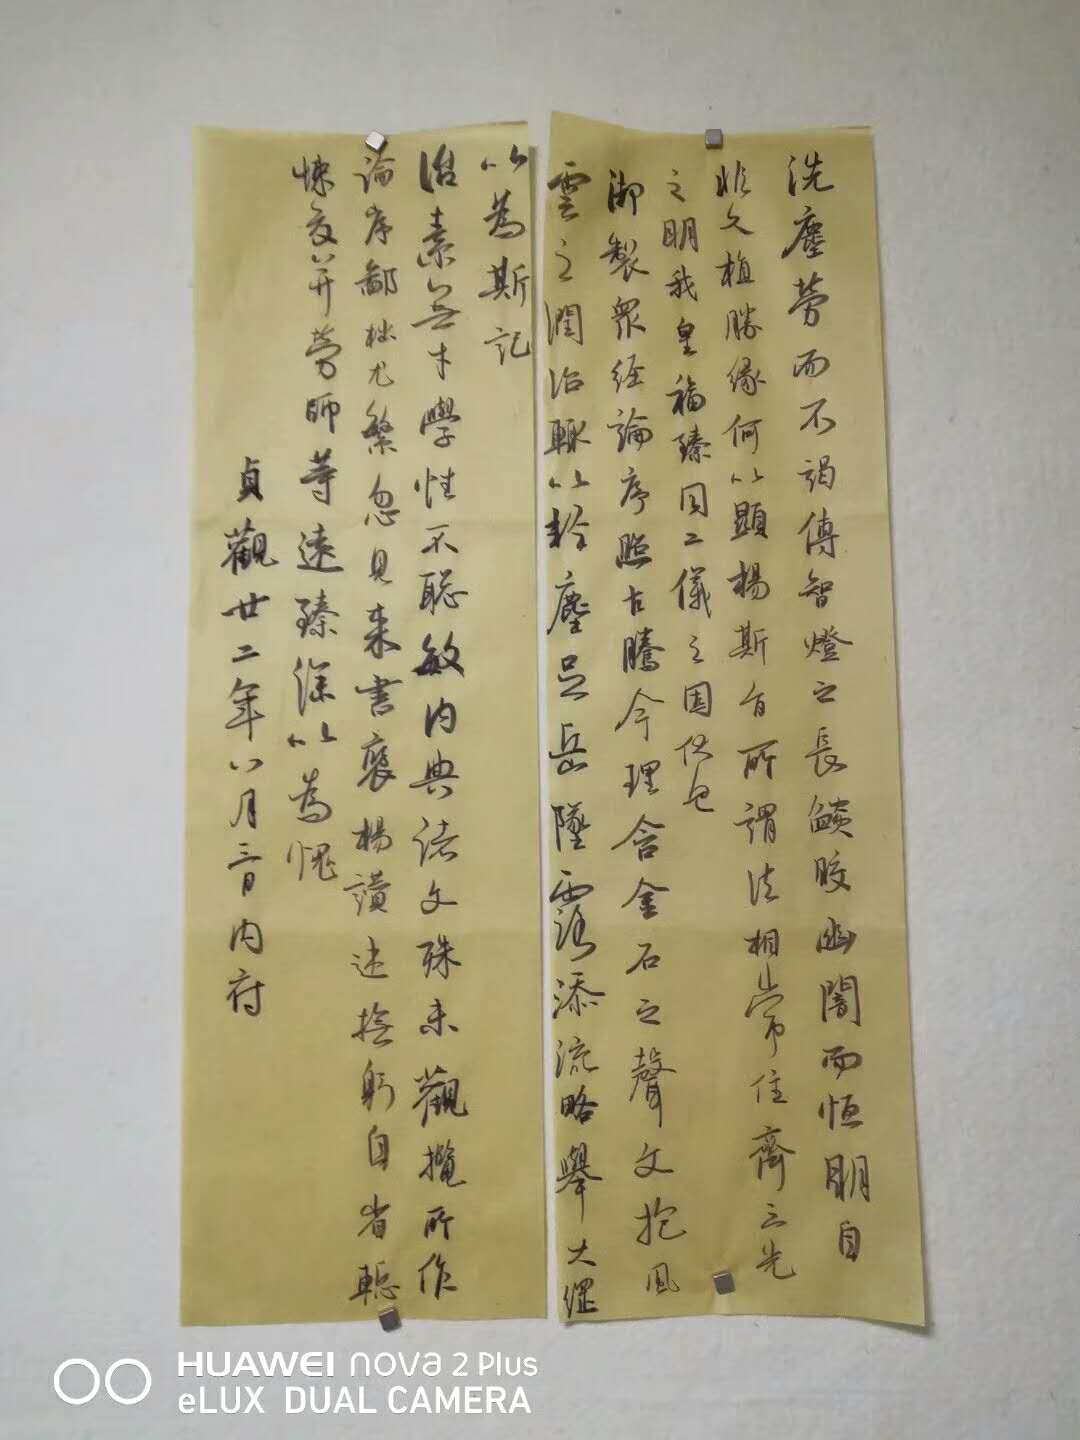 洗塵勞而不竭傳智燈之長燄皎幽闇而恒明自
非久植勝緣何以顯楊斯旨所謂法相常住齊三光
之明我皇福臻同二儀之固伏見
御製眾經論序照古騰今理含金石之聲文抱風
雲之潤治輒以輕塵足岳墜露添流略舉大綱
以為斯記
治素無才學性不聡敏內典諸文殊未觀攬所作
論序鄙拙尤繁忽見來書褒楊讚述撫躬自省慙
悚交并勞師等遠臻深以為愧
貞觀廿二年八月三日內府
HUAWEI nova 2 Plus
eLUX DUAL CAMERA